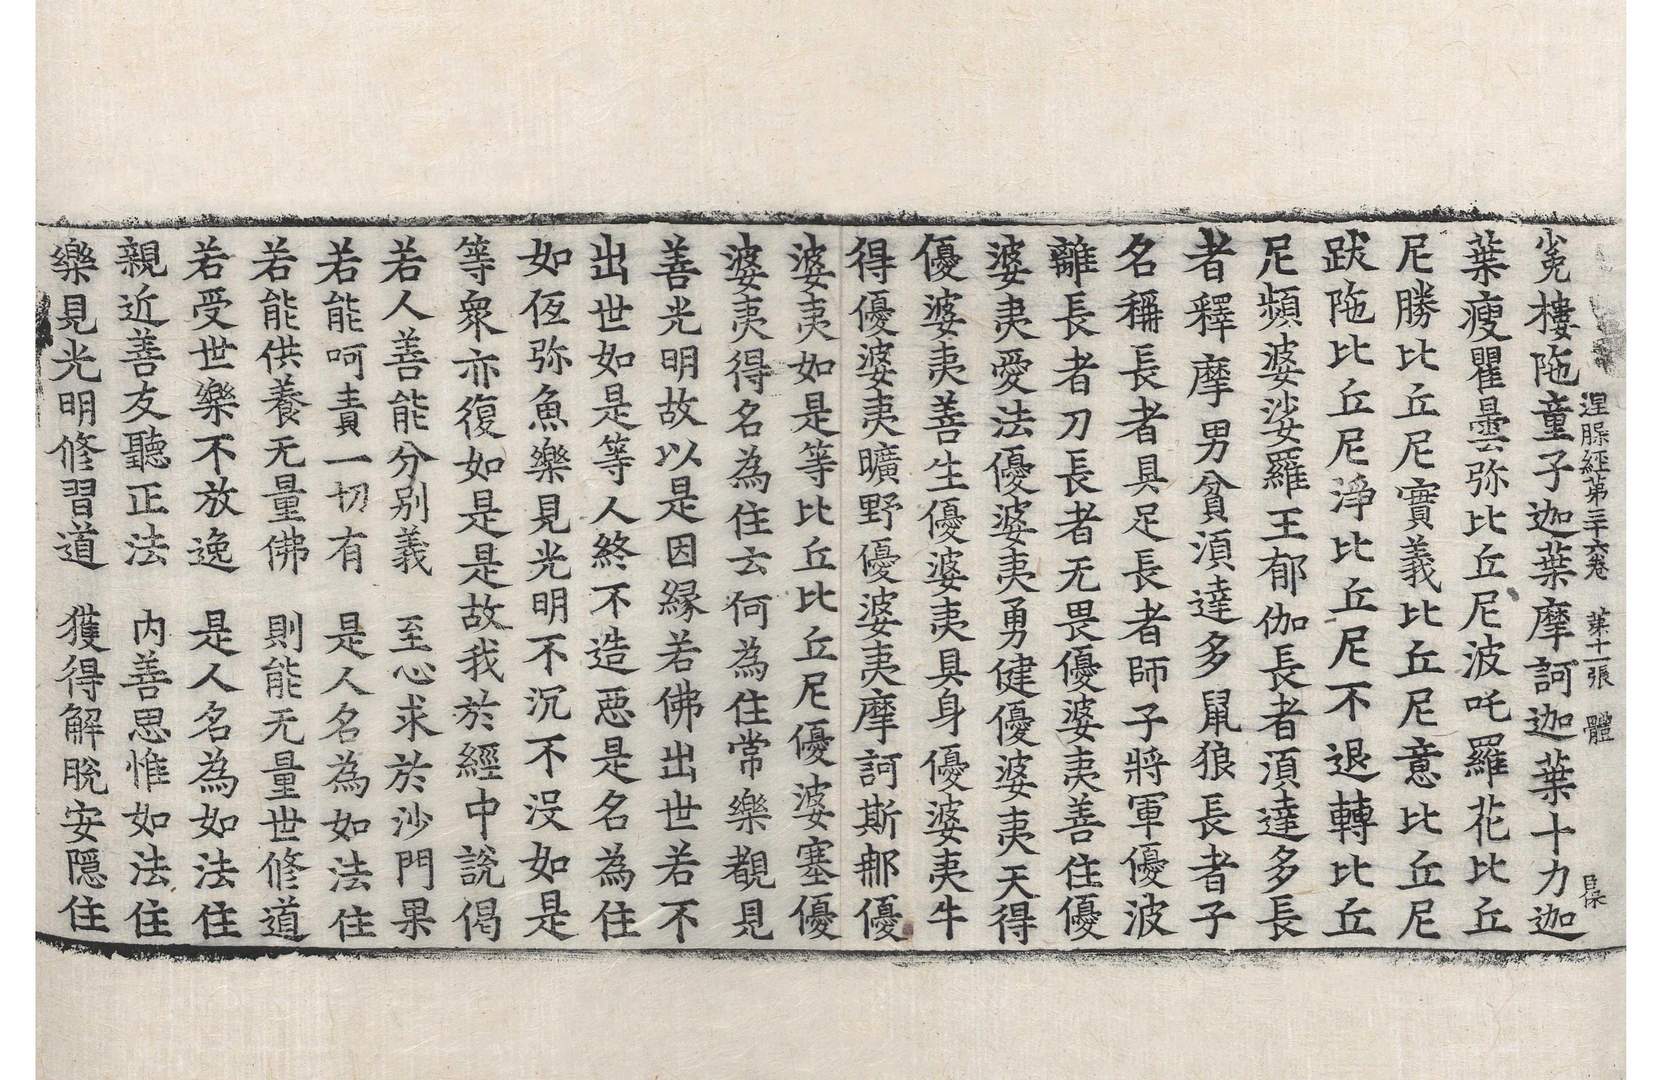 涅脲經第三十六卷 第十一張 體
㝹樓陁童子迦葉摩訶迦葉十力迦
葉瘦瞿曇弥比丘尼波吒羅花比丘
尼勝比丘尼實義比丘尼意比丘尼
跋陁比丘尼淨比丘尼不退轉比丘
尼頻婆娑羅王郁伽長者湏達多長
者釋摩男貧湏達多鼠狼長者子
名稱長者具足長者師子將軍優波
離長者刀長者无畏優婆夷善住優
婆夷愛法優婆夷勇健優婆夷天得
優婆夷善生優婆夷具身優婆夷牛
得優婆夷曠野優婆夷摩訶斯那優
婆夷如是等比丘比丘尼優婆塞優
婆夷得名為住云何為住常樂觀見
善光明故以是因緣若佛出世若不
出世如是等人終不造惡是名為住
如㤚弥魚樂見光明不沉不没如是
等衆亦復如是是故我於經中說偈
若人善能分别義 至心求於沙門果
若能呵責一切有 是人名為如法住
若能供養无量佛 則能无量世修道
若受世樂不放逸 是人名為如法住
親近善友聽正法 内善思惟如法住
樂見光明修習道 獲得解脫安隱住